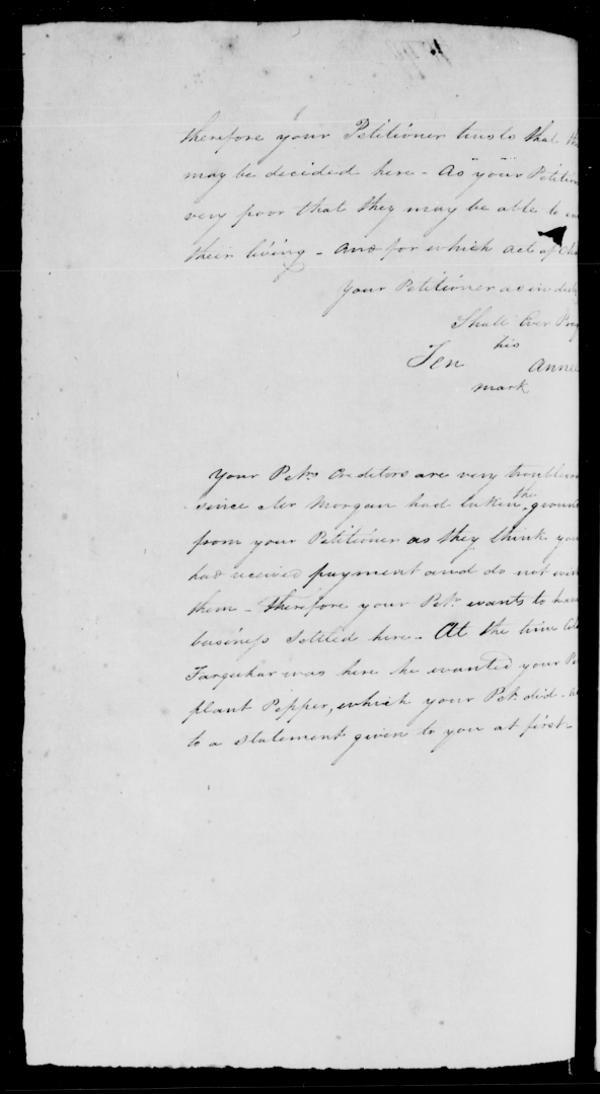 therefore your Petitioner trusts that
may be decided here - As your Petition
very poor that they may be able to
their living - and for which act of Cha
your Petitioner as in du
Shall Ever Pray
his
Ten Anne
mark
Your Petrs Creditors are very troubles
since Mr Morgan had taken the ground
from your Petitioner as they think you
had received payment and do not
them - therefore your Petr wants to have
business Settled here - At the time Col
Farquhar was here he wanted your Pe
plant Pepper, which your Petr did -
to a statement given to you at first -